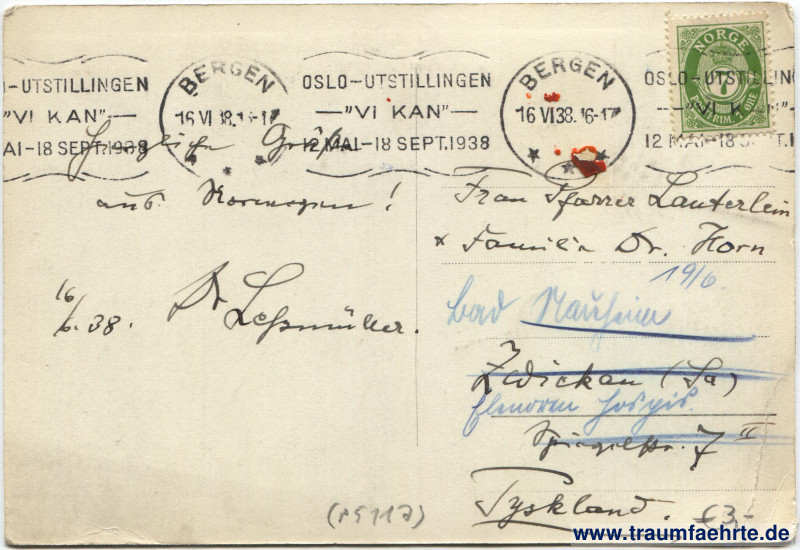 BERGEN
16 VI 38. 16-17
OSLO-UTSTILLINGEN
"VI KAN"
12 MAI-18 SEPT.1938
BERGEN
16 VI 38. 16-17
OSLO-UTSTILLINGEN
"VI KAN"
12 MAI-18 SEPT.1938
O-UTSTILLINGEN
"VI KAN"
MAI-18 SEPT.1938
NORGE
7
Herzliche Grüße
aus Norwegen!
16/6.38. Dr Leßmüller.
Frau Pfarrer Lauterlein
+ Familie Dr. Horn
19/6.
Bad Nauheim
Zwickau (Sa)
Hospiz.
Spiegelstr. 7 II
Tyskland.
(PS117)
€3,-
www.traumfaehrte.de